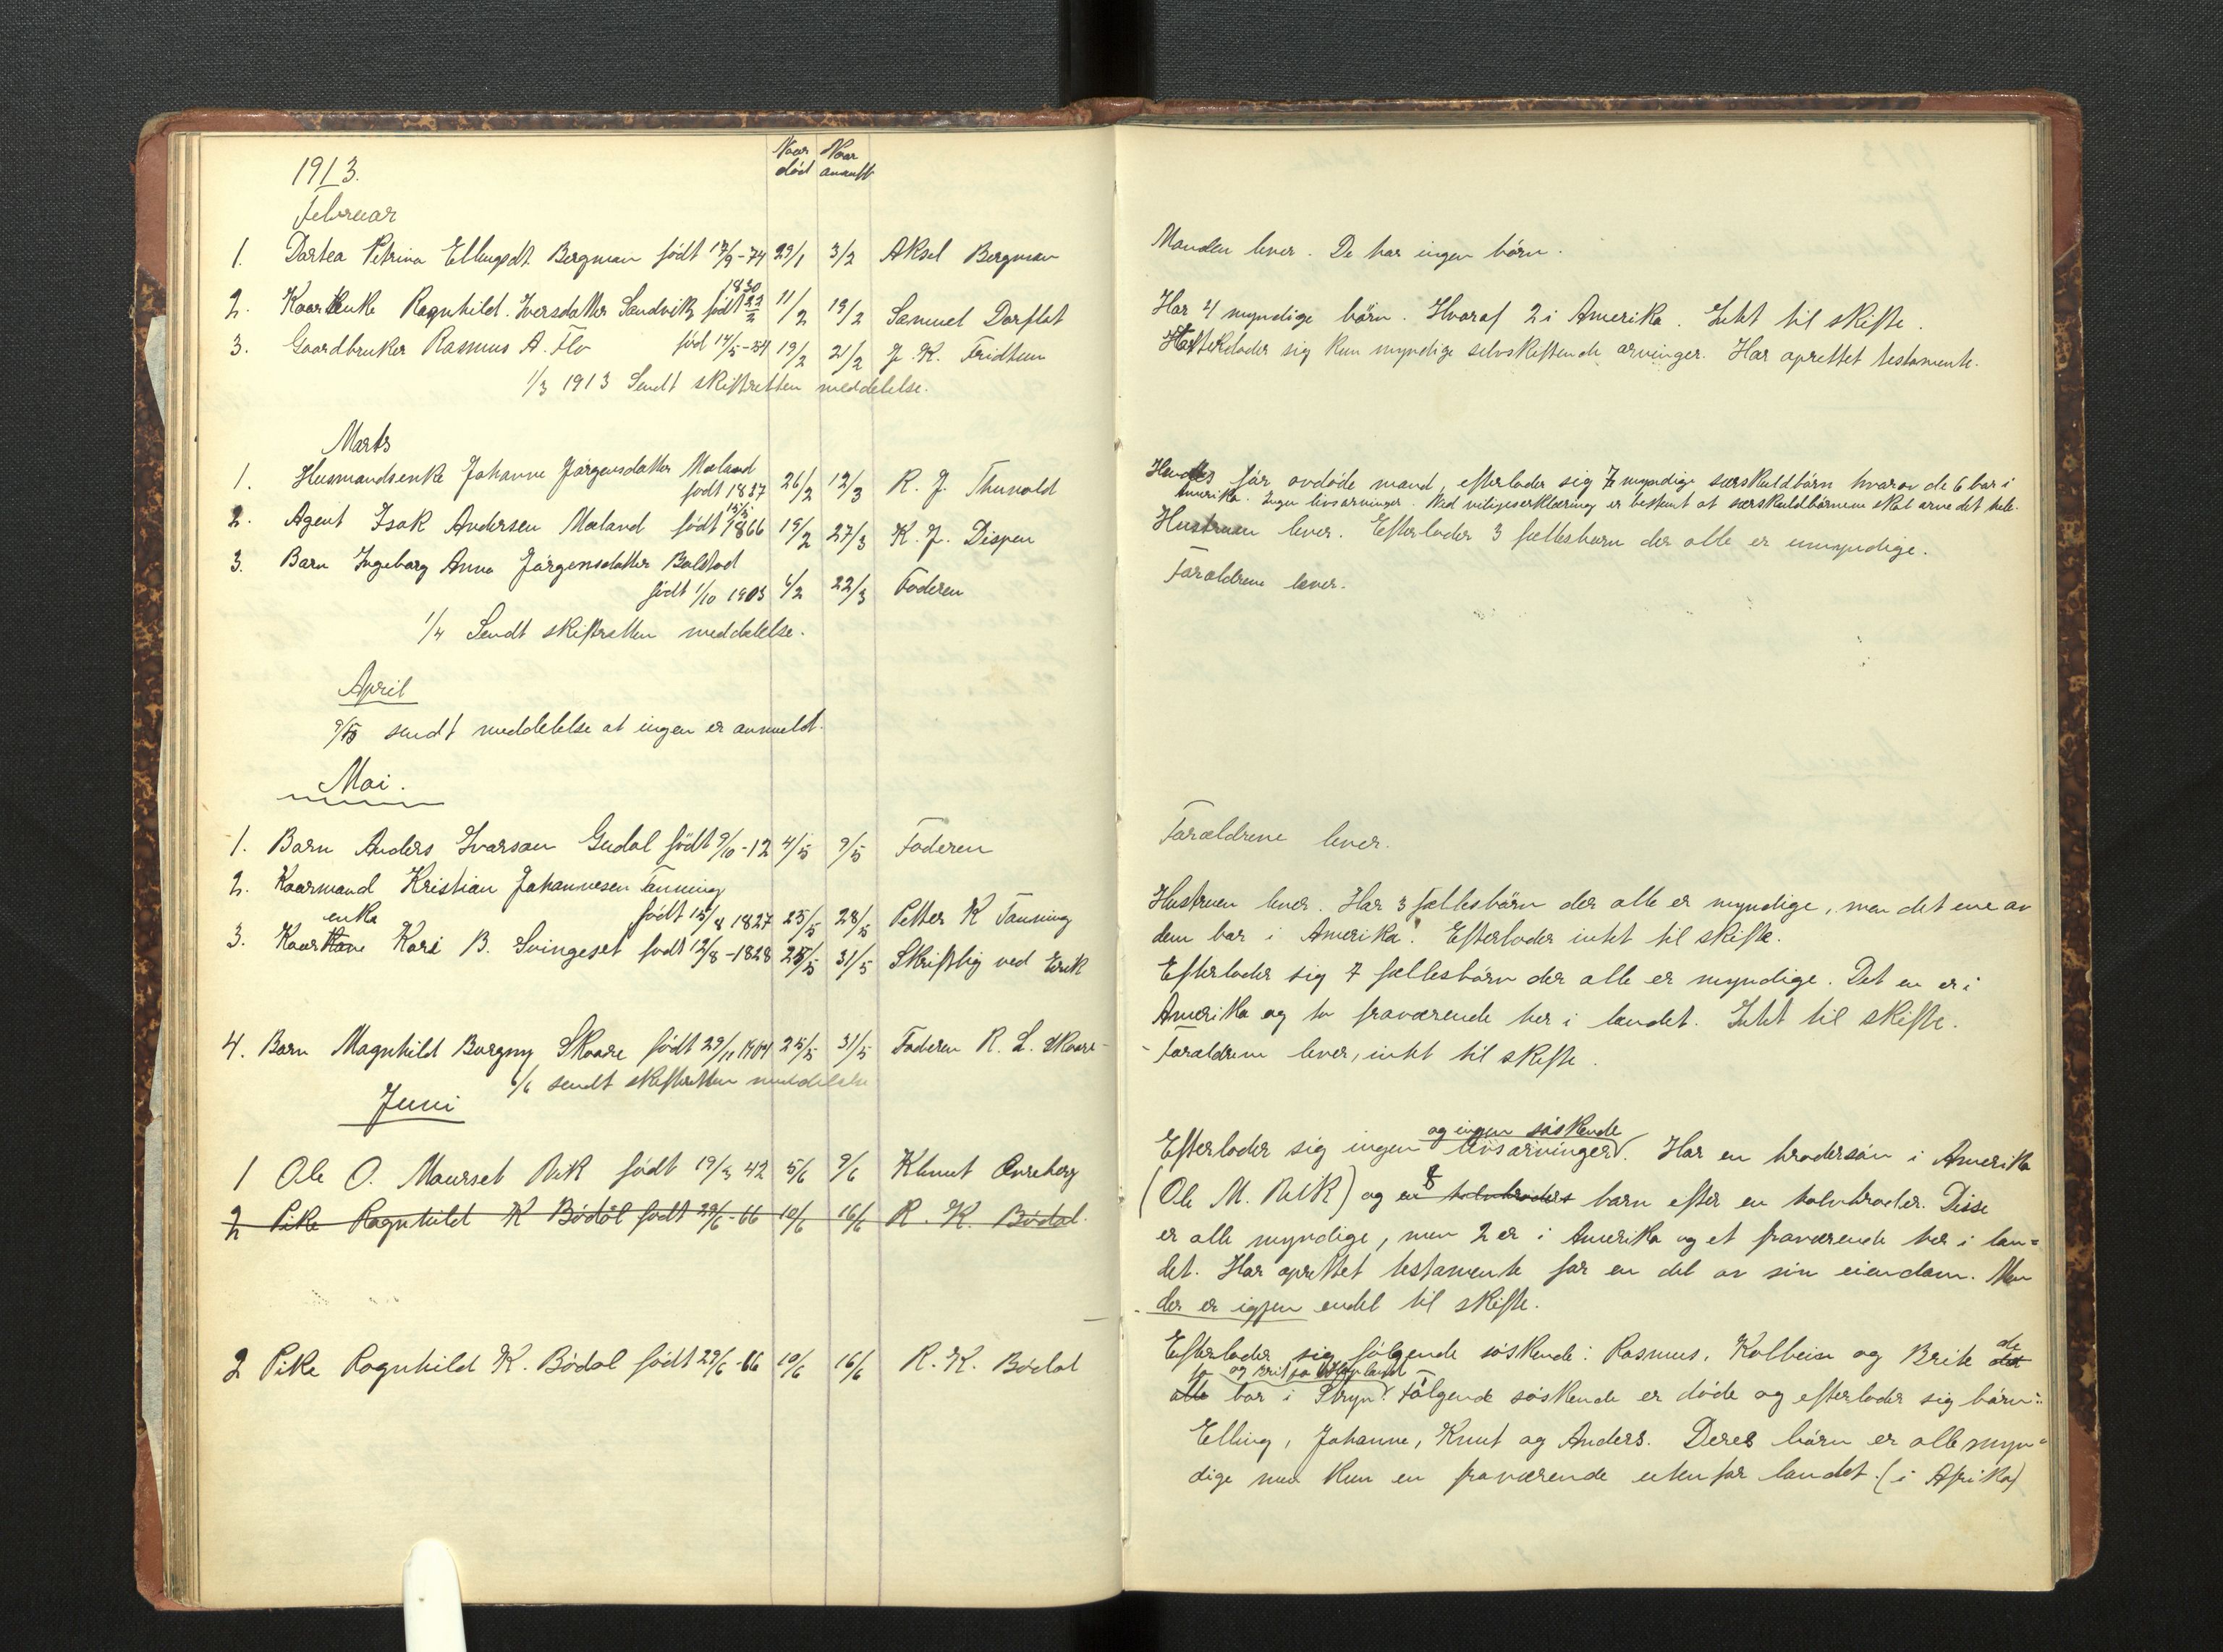 1913.
Naar død
Naar anmeldt
Februar
1. Dortea Petrina Ellingsdt. Bergman født 17/9-74 29/1 3/2 Aksel Bergman
Manden lever. De har ingen børn.
2. Kaarenke Ragnhild Iversdatter Sandvik født 22/2 1830 11/2 19/2 Samuel Dorflot
Har 4 myndige børn. Hvoraf 2 i Amerika. Intet til skifte.
3. Gaardbruker Rasmus A. Flo fød 14/5-34 19/2 21/2 J. K. Fridheim
Efterlader sig kun myndige selvskiftende arvinger. Har oprettet testamente.
1/3 1913 Sendt skifteretten meddelelse.
Marts
1. Husmandsenke Johanne Jørgensdatter Mæland
født 1837 26/2 12/3 R. J. Thunold
før avdøde mand, efterlader sig 7 myndige særskuldbørn hvorav de 6 bor i
Amerika. Ingen livsarvinger. Ved viljeserklæring er bestemt at særskuldbørnene skal arve det hele.
2. Agent Isak Andersen Mæland født 1866 19/2 27/3 K. J. Dispen
Hustruen lever. Efterlader 3 fællesbarn der alle er umyndige.
3. Barn Ingeborg Anna Jørgensdatter Bolstad
født 1/10 1903 6/2 22/3 Faderen
Forældrene lever.
1/4 Sendt skifteretten meddelelse.
April
9/5 sendt meddelelse at ingen er anmeldt.
Mai.
1. Barn Anders Ivarson Gudal født 9/10-12 4/5 9/5 Faderen
Forældrene lever.
2. Kaarmand Kristian Johannesen Tænning
født 15/8 1827 25/5 28/5 Petter K Tænning
Hustruen lever. Har 3 fællesbørn der alle er myndige, men det ene av
dem bor i Amerika. Efterlader intet til skifte.
3. Kaarenke Kari B. Svingeset født 12/8-1828 25/5 31/5 Skriftlig ved Eirik
Efterlader sig 7 fællesbørn der alle er myndige. Det en er i
Amerika og to fraværende her i landet. Intet til skifte.
4. Barn Magnhild Borgny Skaare født 29/11 1904 25/5 31/5 Faderen R. L. Skaare
Forældrene lever, intet til skifte.
6/6 sendt skifteretten meddelelse
Juni
1 Ole O. Maurset Vik født 19/3 42 5/6 9/6 Klmut Ovreberg
Efterlader sig ingen livsarvinger og ingen søskende. Har en brodersøn i Amerika
(Ole M. Vik) og en halvbroders 8 barn efter en halvbroder. Disse
er alle myndige, men 2 er i Amerika og et fraværende her i lan=
det. Har oprettet testamente for en del av sin eiendom. Men
der er igjen endel til skifte.
2 Pike Ragnhild K Bødal født 29/6-66 10/6 16/6 R. K. Bødal.
2 Pike Ragnhild K. Bødal født 29/6-66 10/6 16/6 R. K. Bødal
Efterlader sig følgende søskende: Rasmus, Kolbein og Brite det de
alle to bor i Stryn og Brit paa Følgende søskende er døde og efterlader sig børn:
Elling, Johanne, Knut og Anders. Deres børn er alle myn=
dige med kun en fraværende utenfor landet. (i Afrika)